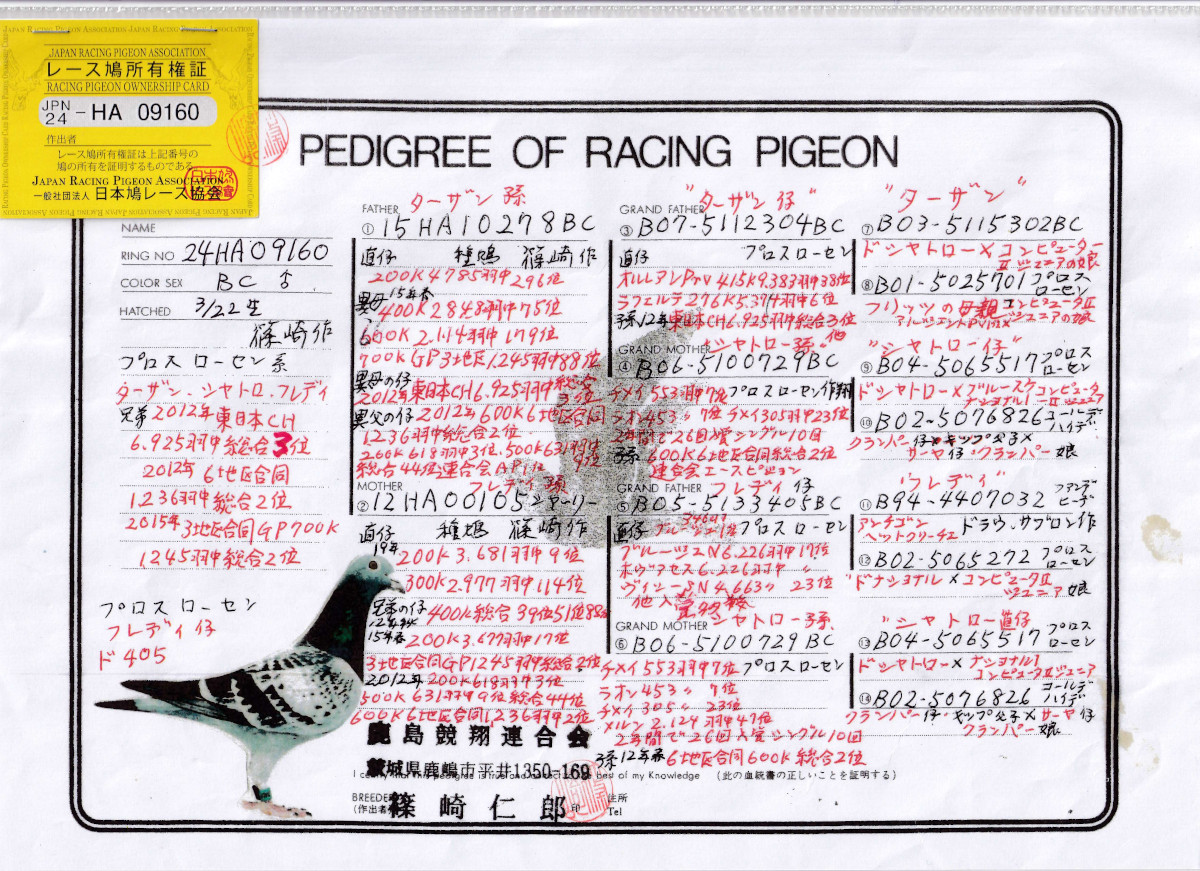 JAPAN RACING PIGEON ASSOCIATION
レース鳩所有権証
RACING PIGEON OWNERSHIP CARD
JPN 24 - HA 09160
作出者
レース鳩所有権証は上記番号の
鳩の所有を証明するものである
JAPAN RACING PIGEON ASSOCIATION
一般社団法人 日本鳩レース協会
PEDIGREE OF RACING PIGEON
NAME
RING NO 24HA09160
COLOR SEX BC ♂
HATCHED 3/22生
篠崎作
プロスローセン系
ターザン.シャトロ.フレディ
兄弟2012年東日本CH
6.925羽中総合3位
2012年6地区合同
1236羽中総合2位
2015年3地区合同GP700K
1245羽中総合2位
プロスローセン
フレディ仔
ド405
ターザン孫
FATHER
① 15HA10278BC
直仔 種鳩 篠崎作
200K4785羽中296位
異母 15年春
400K2848羽中75位
600K2.114羽中179位
700KGP3地区1.245羽中88位
異母の仔
2012年東日本CH6.925羽中総合3位
異父の仔2012年600K6地区合同
1236羽中総合2位
200K618羽中3位.500K631羽中9位
総合44位連合会
フレディ孫
MOTHER
② 12HA00105シャーリー
直仔 種鳩 篠崎作
19年
200K3.681羽中9位
300K2.977羽中114位
兄弟の仔
400K総合39位51位88位
15年春 200K3.677羽中17位
3地区合同GP1245羽中総合2位
2012年200K618羽中3位
500K631羽中9位総合44位
600K6地区合同1.236羽中2位
"ターザン仔"
GRAND FATHER
③ B07-5112304BC
直仔 プロスローセン
オルレアンPrV415K9.383羽中38位
ラフェルテ276K5.374羽中6位
孫12年東日本CH6.925羽中総合3位 他
シャトロー孫
GRAND MOTHER
④ B06-5100729BC
チメイ553羽中7位 プロスローセン作翔
ラオン453〃7位チメイ305羽中23位
2年間で26回入賞シングル10回
孫600K6地区合同総合2位
連合会エースピジョン
フレディ仔
GRAND FATHER
⑤ B05-5133405BC
直仔 プロスローセン
ブルージュN6.226羽中17位
ボヴアセス6.226羽中〃
ヴィシーSN4.663〃23位
他入賞多数
シャトロー孫
GRAND MOTHER
⑥ B06-5100729BC
チメイ553羽中7位 プロスローセン
ラオン453〃7位
チメイ305〃23位
メルン2.124羽中47位
2年間で26回入賞シングル10回
孫12年春6地区合同600K総合2位
"ターザン"
⑦ B03-5115302BC
ドシャトロー×コンピューターⅡジュニアの娘
⑧ B01-5025701プロスローセン
フリッツの母親コンピュータⅡジュニアの娘
"シャトロー仔"
⑨ B04-5065517プロスローセン
ドシャトロー×
⑩ B02-5076826ゴールデハイデ
クランパー仔×キップ父子×
サーヤ仔・クランパー娘
"フレディ"
⑪ B94-4407032
ドラウ.サブロン作
⑫ B02-5065272プロスローセン
ドナショナル×コンピュータⅡジュニア娘
シャトロー直仔
⑬ B04-5065517プロスローセン
ドシャトロー×ナショナル1コンピュータⅡジュニア
⑭ B02-5076826ゴールデハイデ
クランパー仔・キップ父子×サーヤ仔
クランパー娘
鹿島競翔連合会
茨城県鹿嶋市平井1350-169
best of my Knowledge (此の血統書の正しいことを証明する)
BREEDER
(作出者) 篠崎仁郎 印
住所
Tel